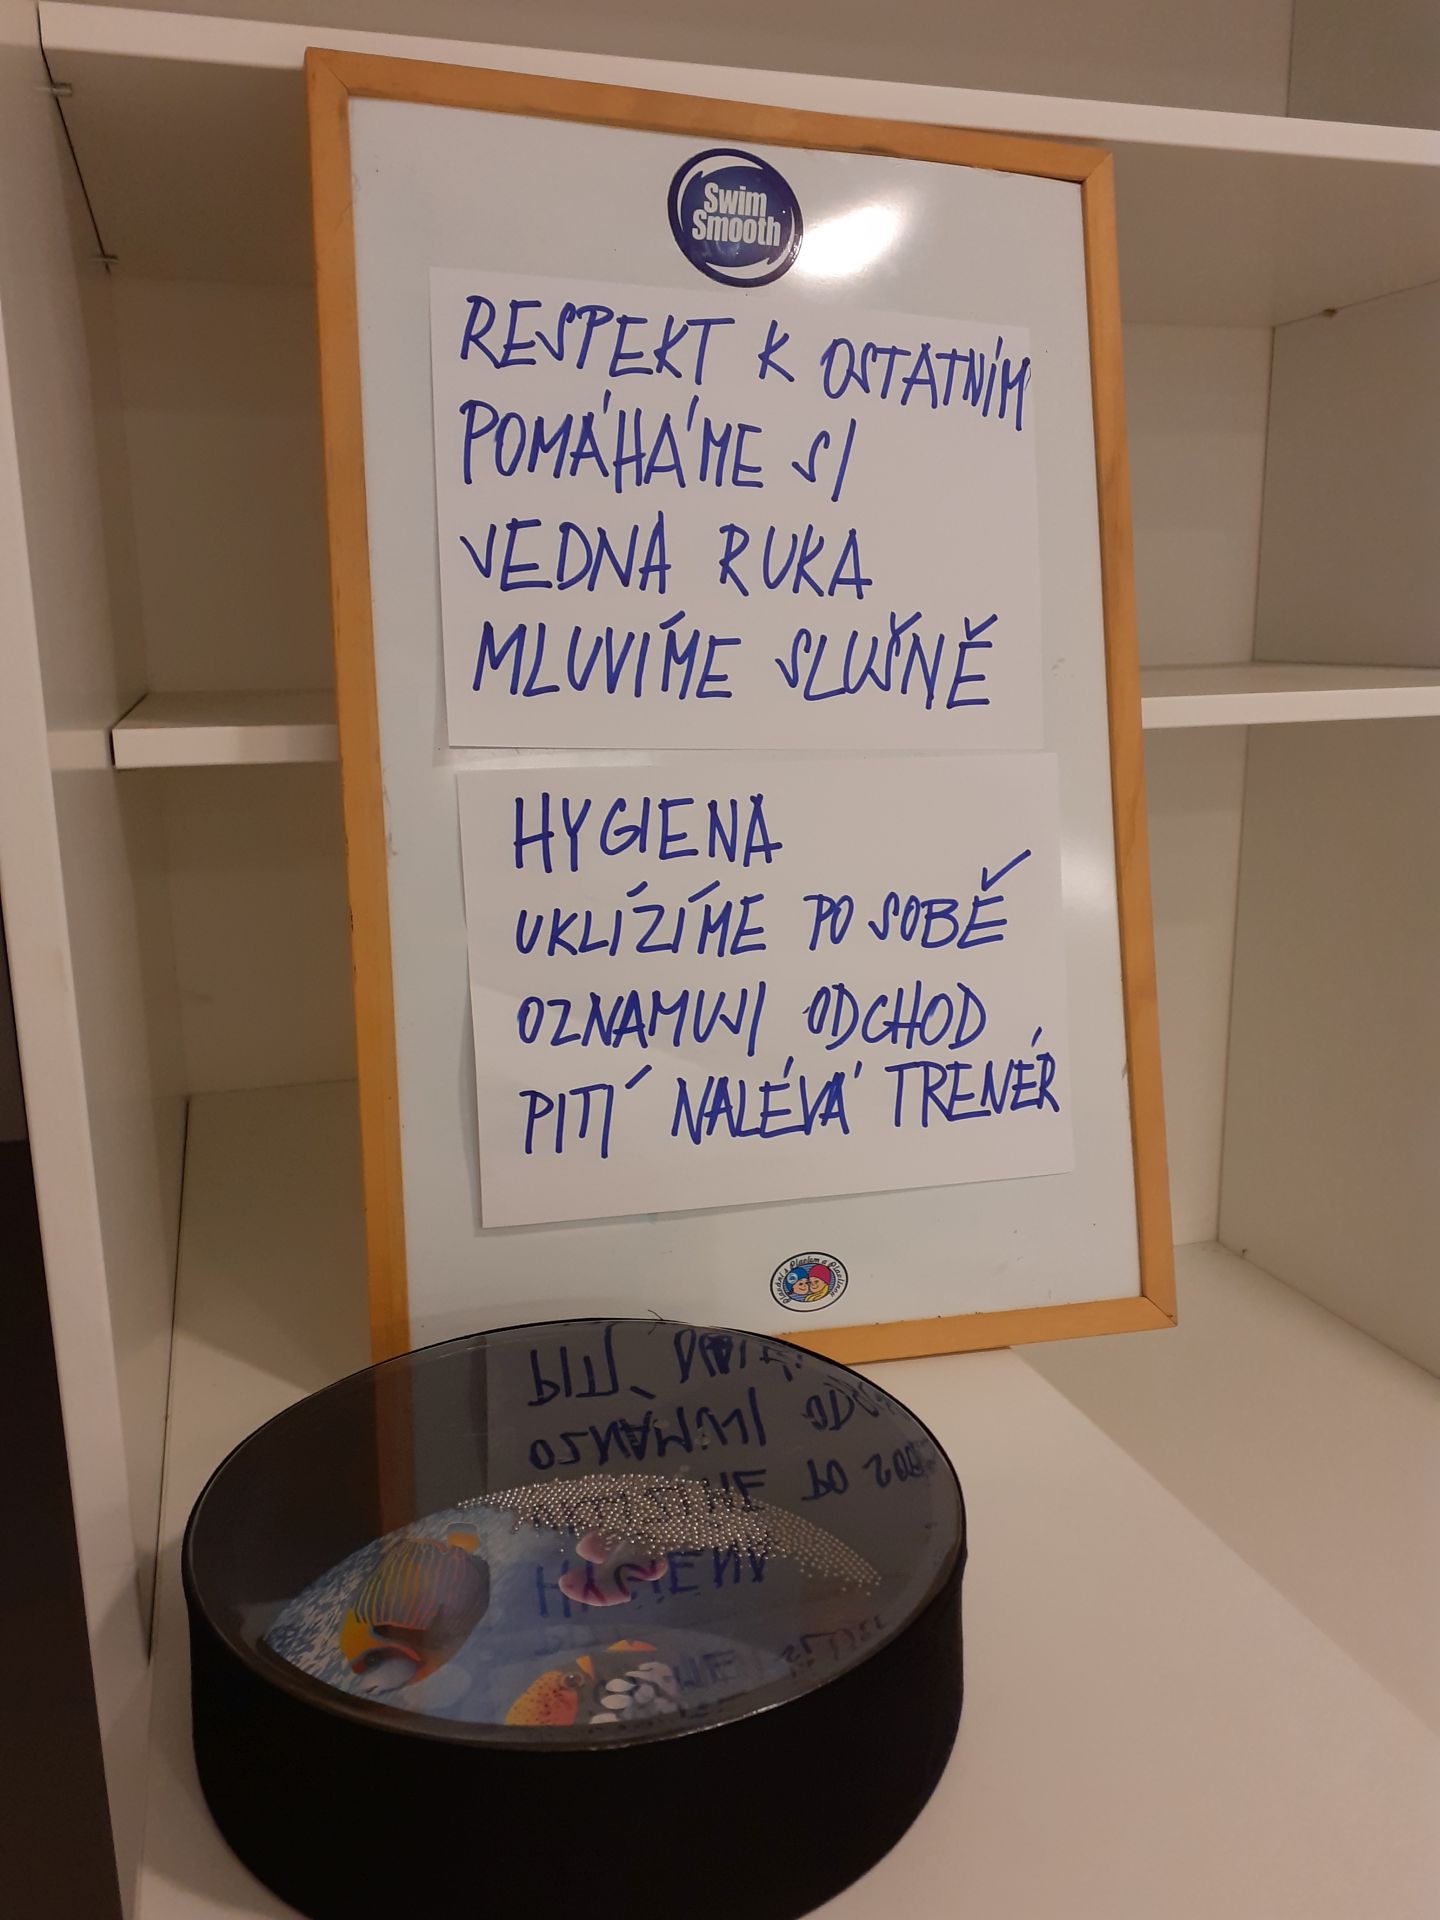 Swim
Smooth
RESPEKT K OSTATNÍM
POMÁHÁME SI
JEDNA RUKA
MLUVÍME SLUŠNĚ
HYGIENA
UKLÍZÍME PO SOBĚ
OZNAMUJI ODCHOD
PITÍ NALÉVÁ TRENÉR